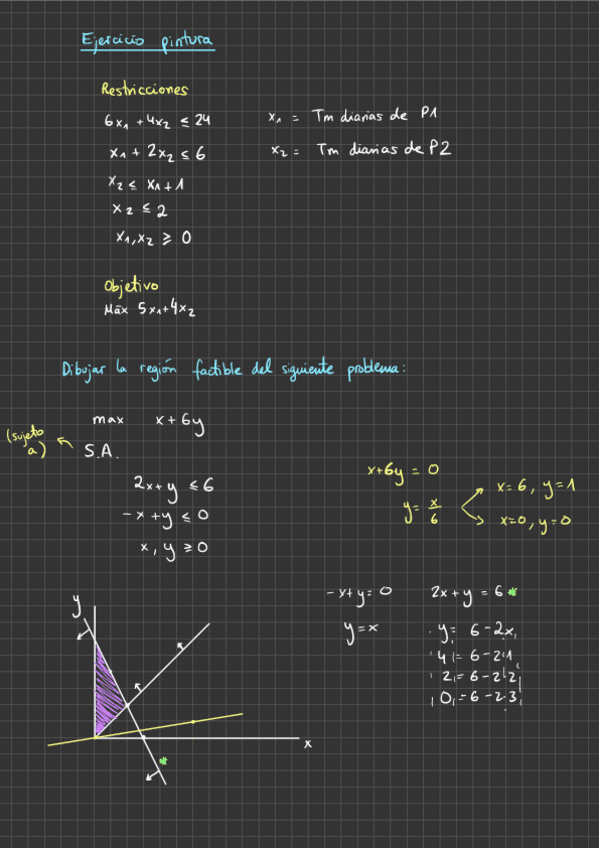 Ejercicio pintura
Restricciones
6x₁ + 4x₂ ≤ 24
x₁ = Tm diarias de P1
x₁ + 2x₂ ≤ 6
x₂ = Tm diarias de P2
x₂ ≤ x₁ + 1
x₂ ≤ 2
x₁, x₂ ≥ 0
Objetivo
Máx 5x₁ + 4x₂
Dibujar la región factible del siguiente problema:
max x + 6y
(sujeto a) ← S.A.
2x + y ≤ 6
-x + y ≤ 0
x, y ≥ 0
x + 6y = 0
y = x/6
x = 6, y = 1
x = 0, y = 0
-x + y = 0
y = x
2x + y = 6 *
y = 6 - 2x
4 = 6 - 2·1
2 = 6 - 2·2
0 = 6 - 2·3
y
x
*